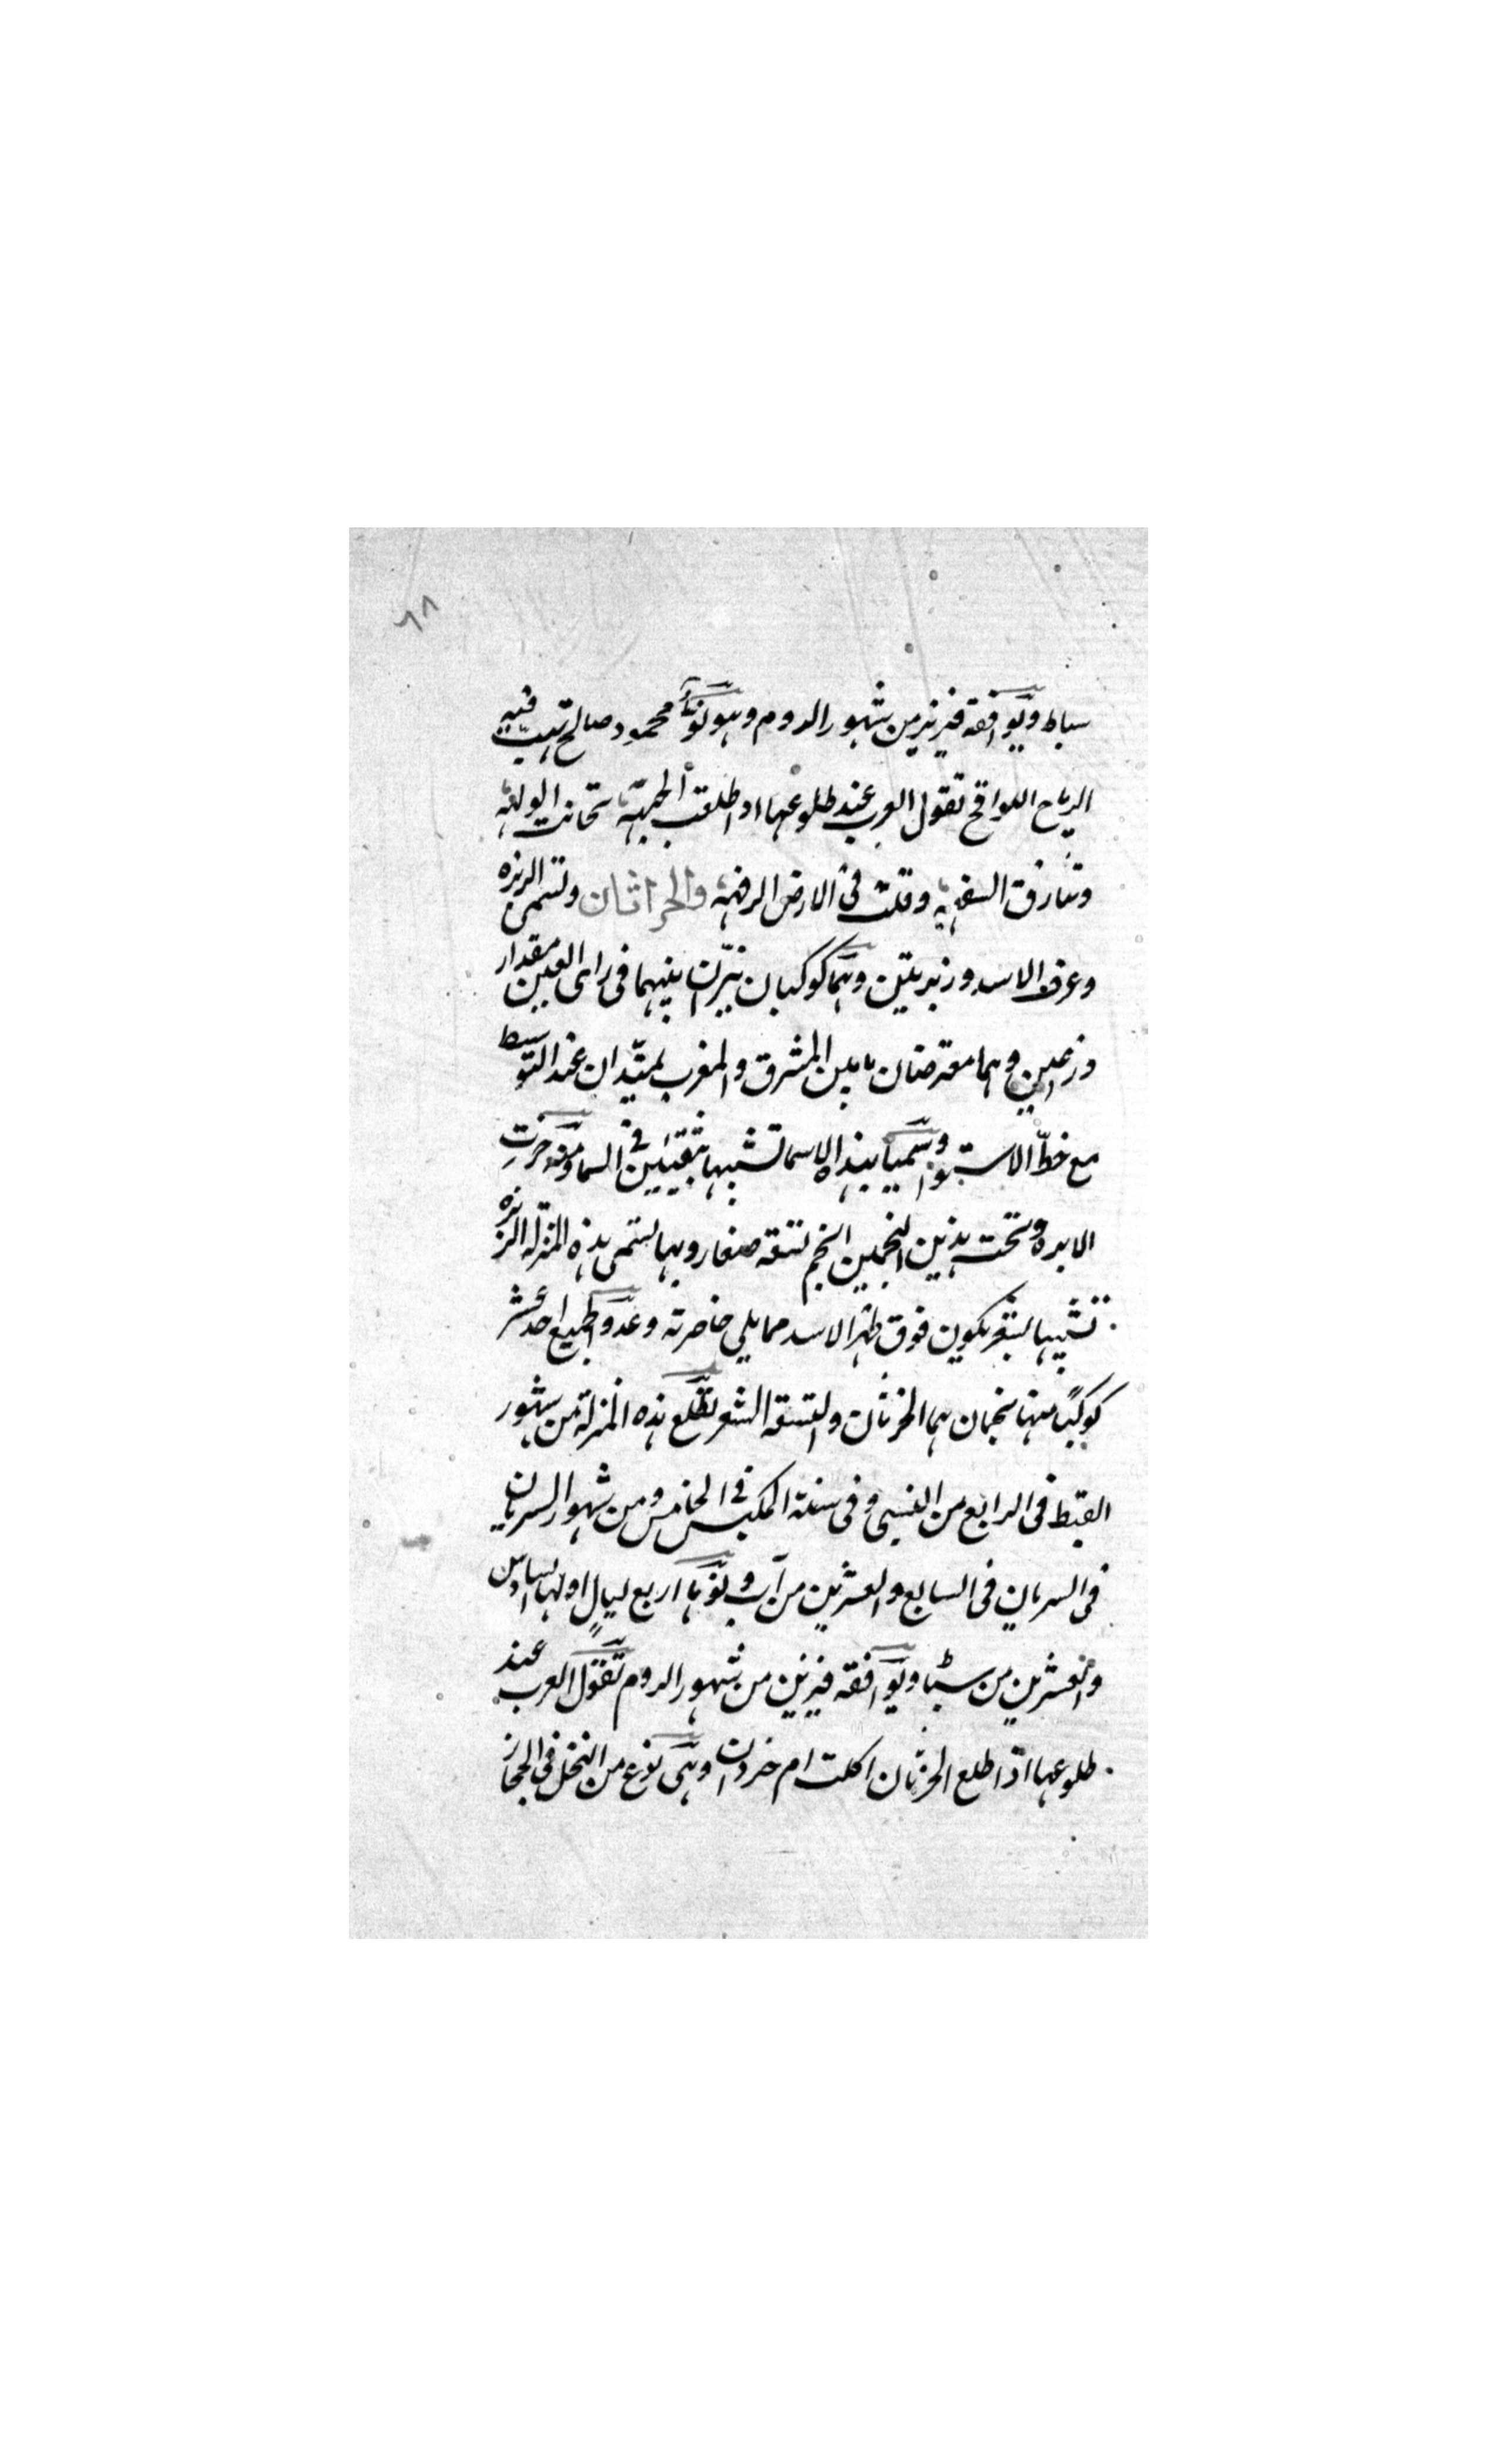 ٦٨
سباط ويوافقه فبرير من شهور الروم وهو نوء محمود صالح تهب فيه
الرياح اللواقح تقول العرب عند طلوعها اذا طلعت الجبهة تحانت الولهة
وتنازق السفهة وقلت فى الارض الرفهة والخراتان وتسمى الزبرة
وعرف الاسد وزبرتين وهما كوكبان نيران بينهما فى راى العين مقدار
ذراعين وهما معترضان ما بين المشرق والمغرب يمتدان عند التوسط
مع خط الاستوا وسميا بهذه الاسما تشبيها بثقبين فى السما ومنه خرت
الابرة وتحت هذين النجمين انجم تسعة صغار وبها تسمى هذه المنزلة الزبرة
تشبيها بشعر يكون فوق ظهر الاسد مما يلي خاصرته وعدو الجميع احد عشر
كوكبًا منها نجمان هما الخرتان والتسعة الشعر تطلع هذه المنزلة من شهور
القبط فى الرابع من النسى وفى سنة الكبس فى الخامس ومن شهور السريان
فى السريان فى السابع والعشرين من آب ونوها اربع ليالٍ اولها السادس
والعشرين من سباط ويوافقه فبرير من شهور الروم تقول العرب عند
طلوعها اذا طلع الخرتان اكلت ام خردان وهى نوع من النخل فى الحجاز